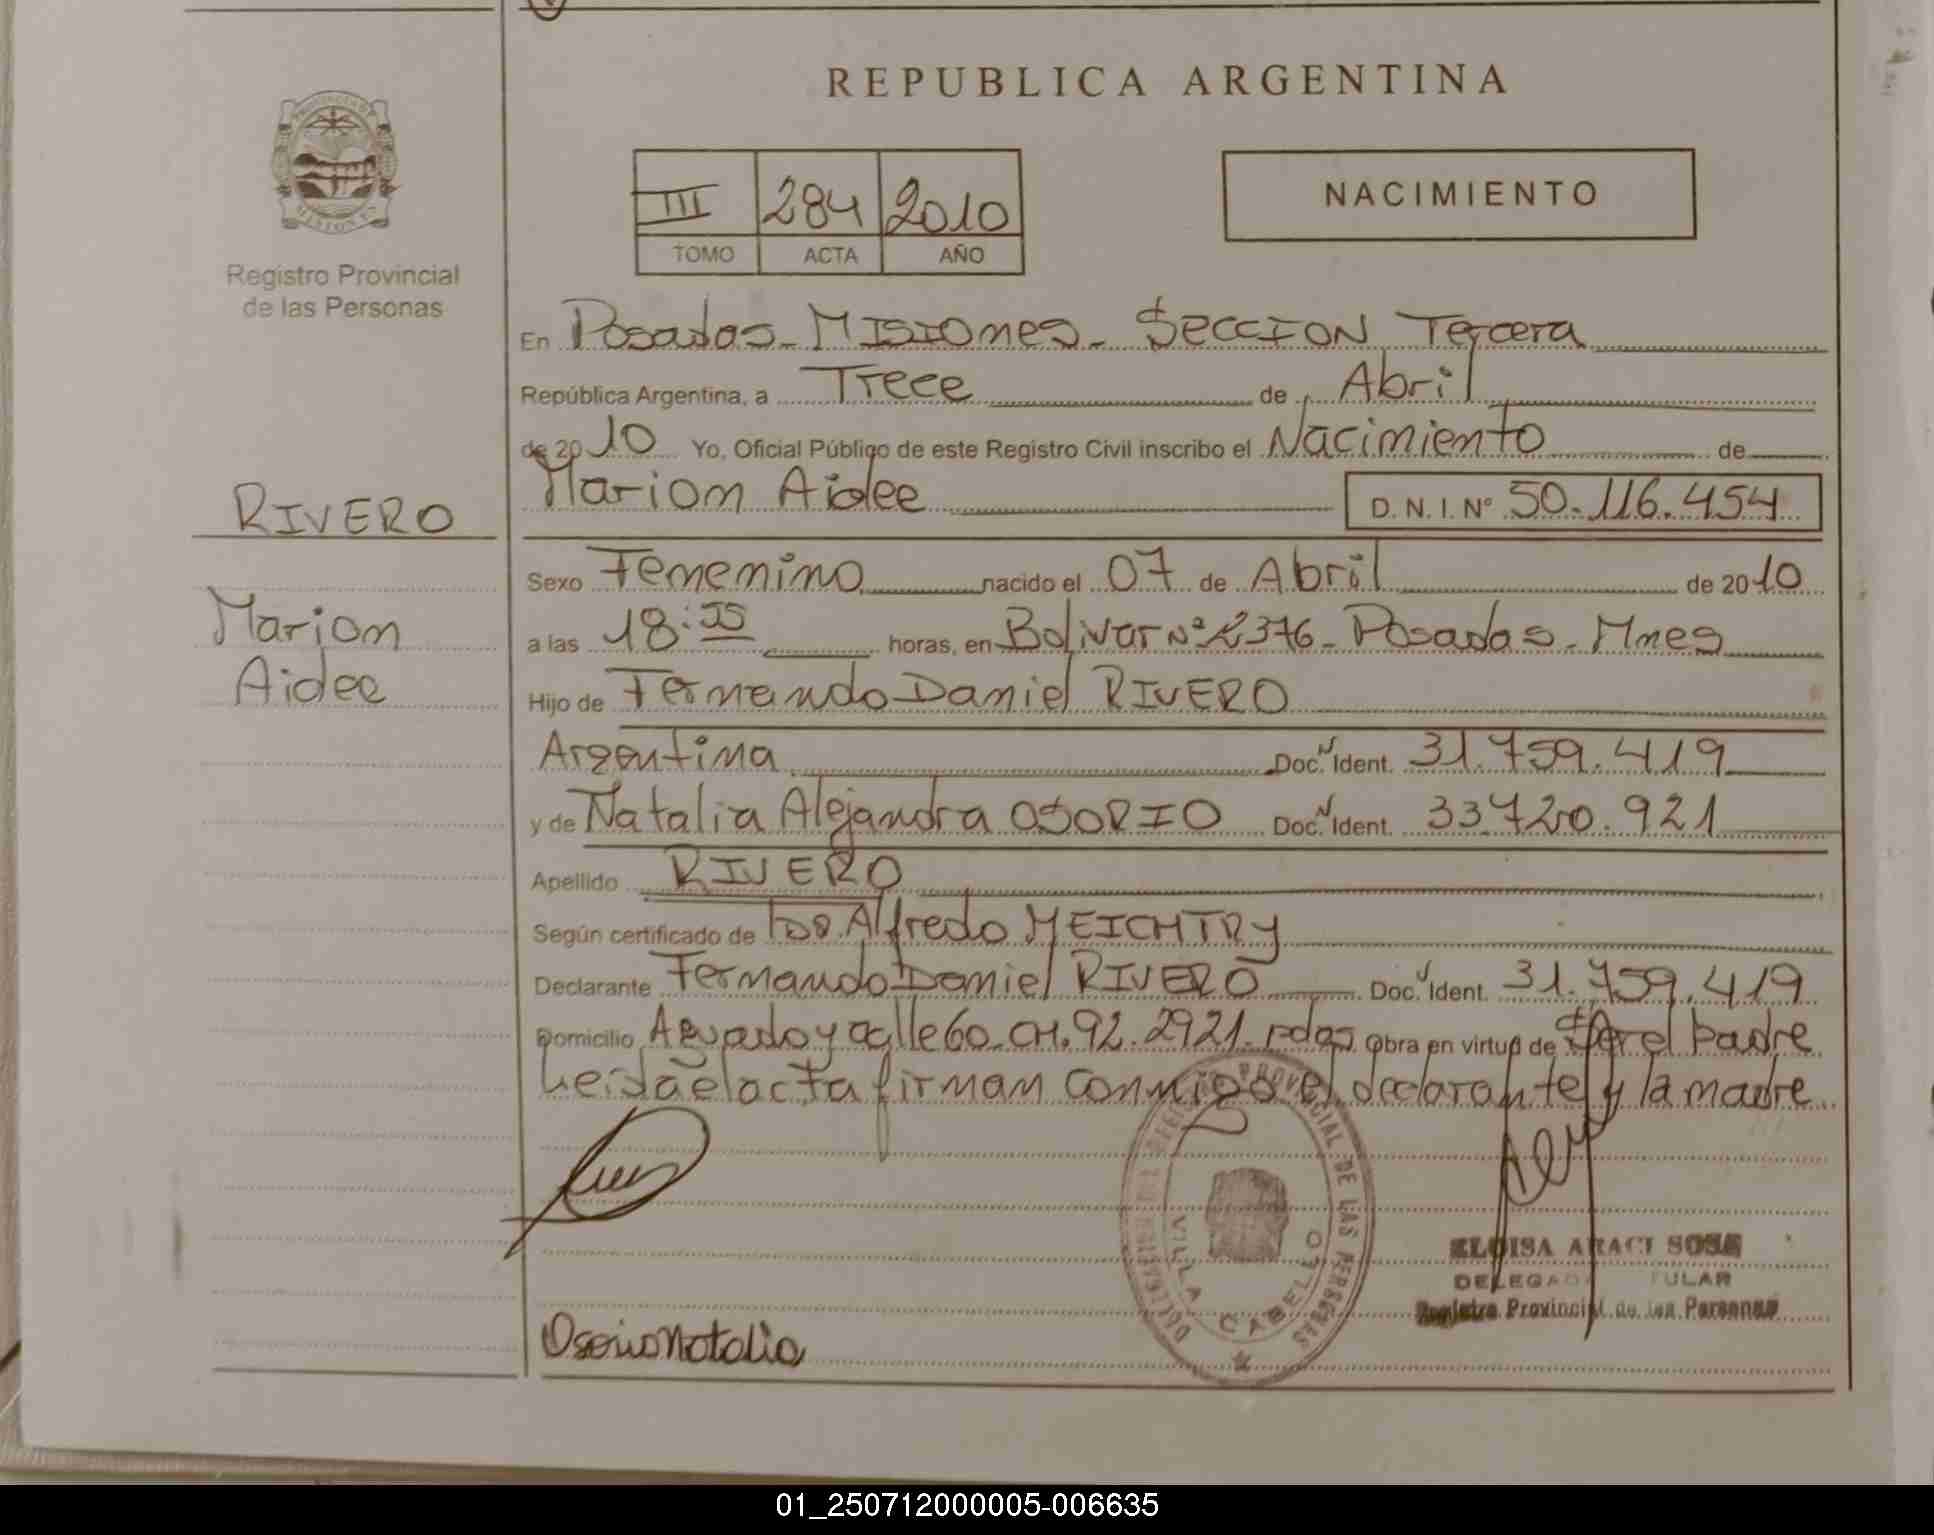 REPUBLICA ARGENTINA
III 284 2010
TOMO ACTA AÑO
NACIMIENTO
Registro Provincial
de las Personas
RIVERO
Marion
Aidee
En Posadas - Misiones - Seccion Tercera
República Argentina, a Trece de Abril
de 2010 Yo, Oficial Público de este Registro Civil inscribo el Nacimiento de
Marion Aidee D. N. I. Nº 50.116.454
Sexo Femenino nacido el 07 de Abril de 2010
a las 18:55 horas, en Bolivar Nº 2376 - Posadas - Mnes
Hijo de Fernando Daniel RIVERO
Argentina Doc. Ident. 31.759.419
y de Natalia Alejandra OSORIO Doc. Ident. 33.720.921
Apellido RIVERO
Según certificado de Alfredo MEICHTRY
Declarante Fernando Daniel RIVERO Doc. Ident. 31.759.419
Domicilio Aguado y calle 60 - CH. 92. 2921 - Pdas Obra en virtud de Ser el Padre
Leida el acta firman conmigo el declarante y la madre
DELEGACION DEL REGISTRO PROVINCIAL DE LAS PERSONAS
VILLA CABELLO
ELOISA ARACI SOSA
DELEGADA TITULAR
Registro Provincial de las Personas
Osorio Natalia
01_250712000005-006635